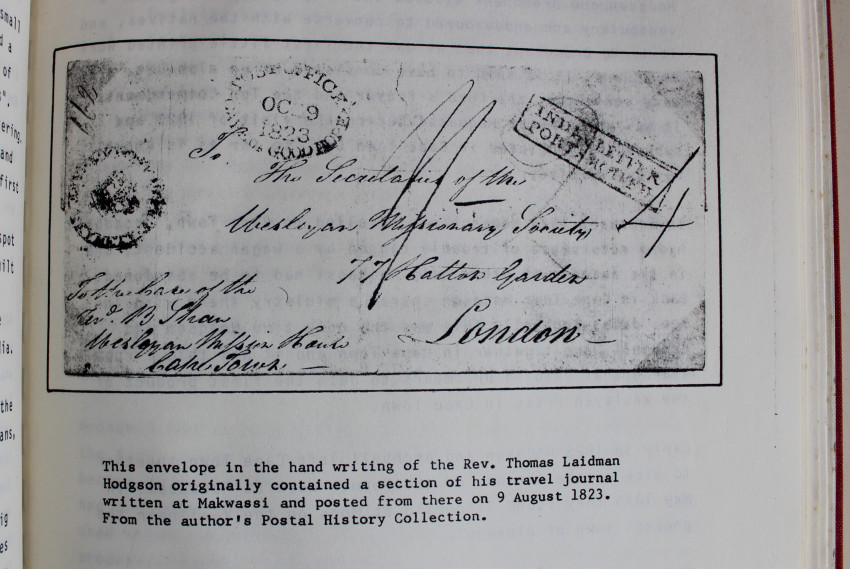 small
d a
of
",
ering.
and
first
spot
ilt
e
lia.
the
ans,
ig
es
POST OFFICE
OC 9
1823
CAPE OF GOOD HOPE
INDIA LETTER
PORTSMOUTH
4
To
The Secretaries of the
Wesleyan Missionary Society
77 Hatton Garden
London
To the care of the
Revd. B Shaw
Wesleyan Mission House
Cape Town
This envelope in the hand writing of the Rev. Thomas Laidman
Hodgson originally contained a section of his travel journal
written at Makwassi and posted from there on 9 August 1823.
From the author's Postal History Collection.